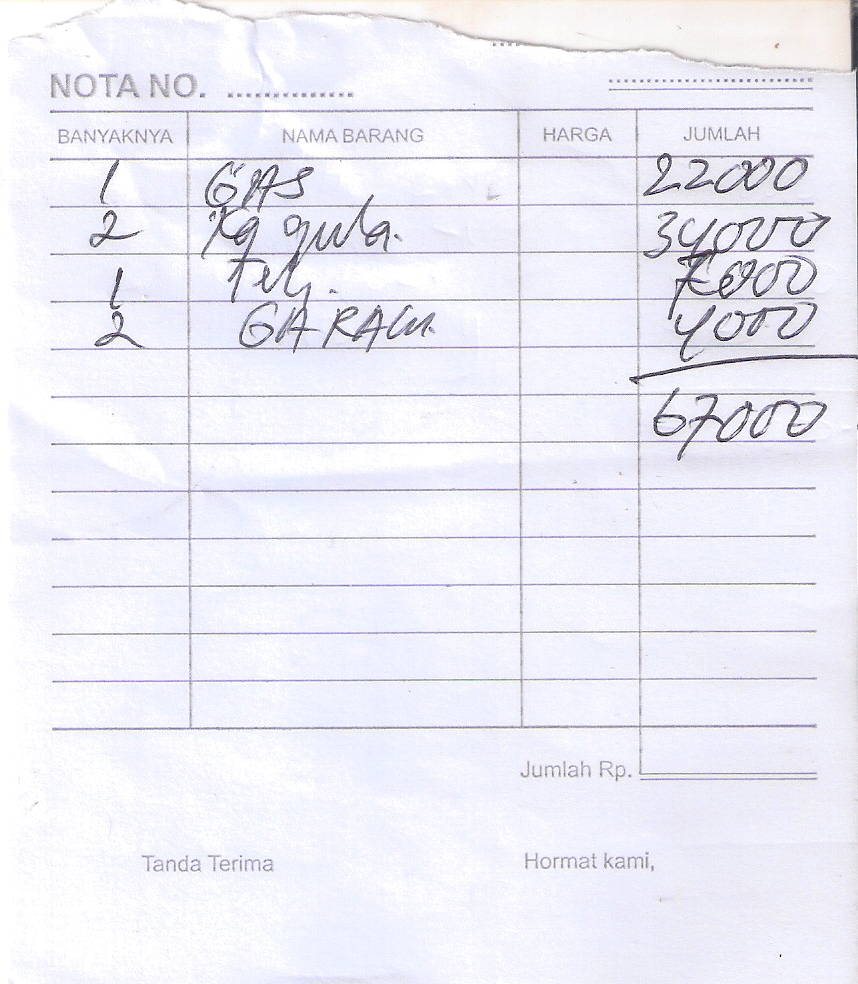 NOTA NO. ..............
BANYAKNYA NAMA BARANG HARGA JUMLAH
1 GAS 22000
2 Kg gula. 34000
1 Teh. 7000
2 GARAM 4000
67000
Jumlah Rp.
Tanda Terima Hormat kami,